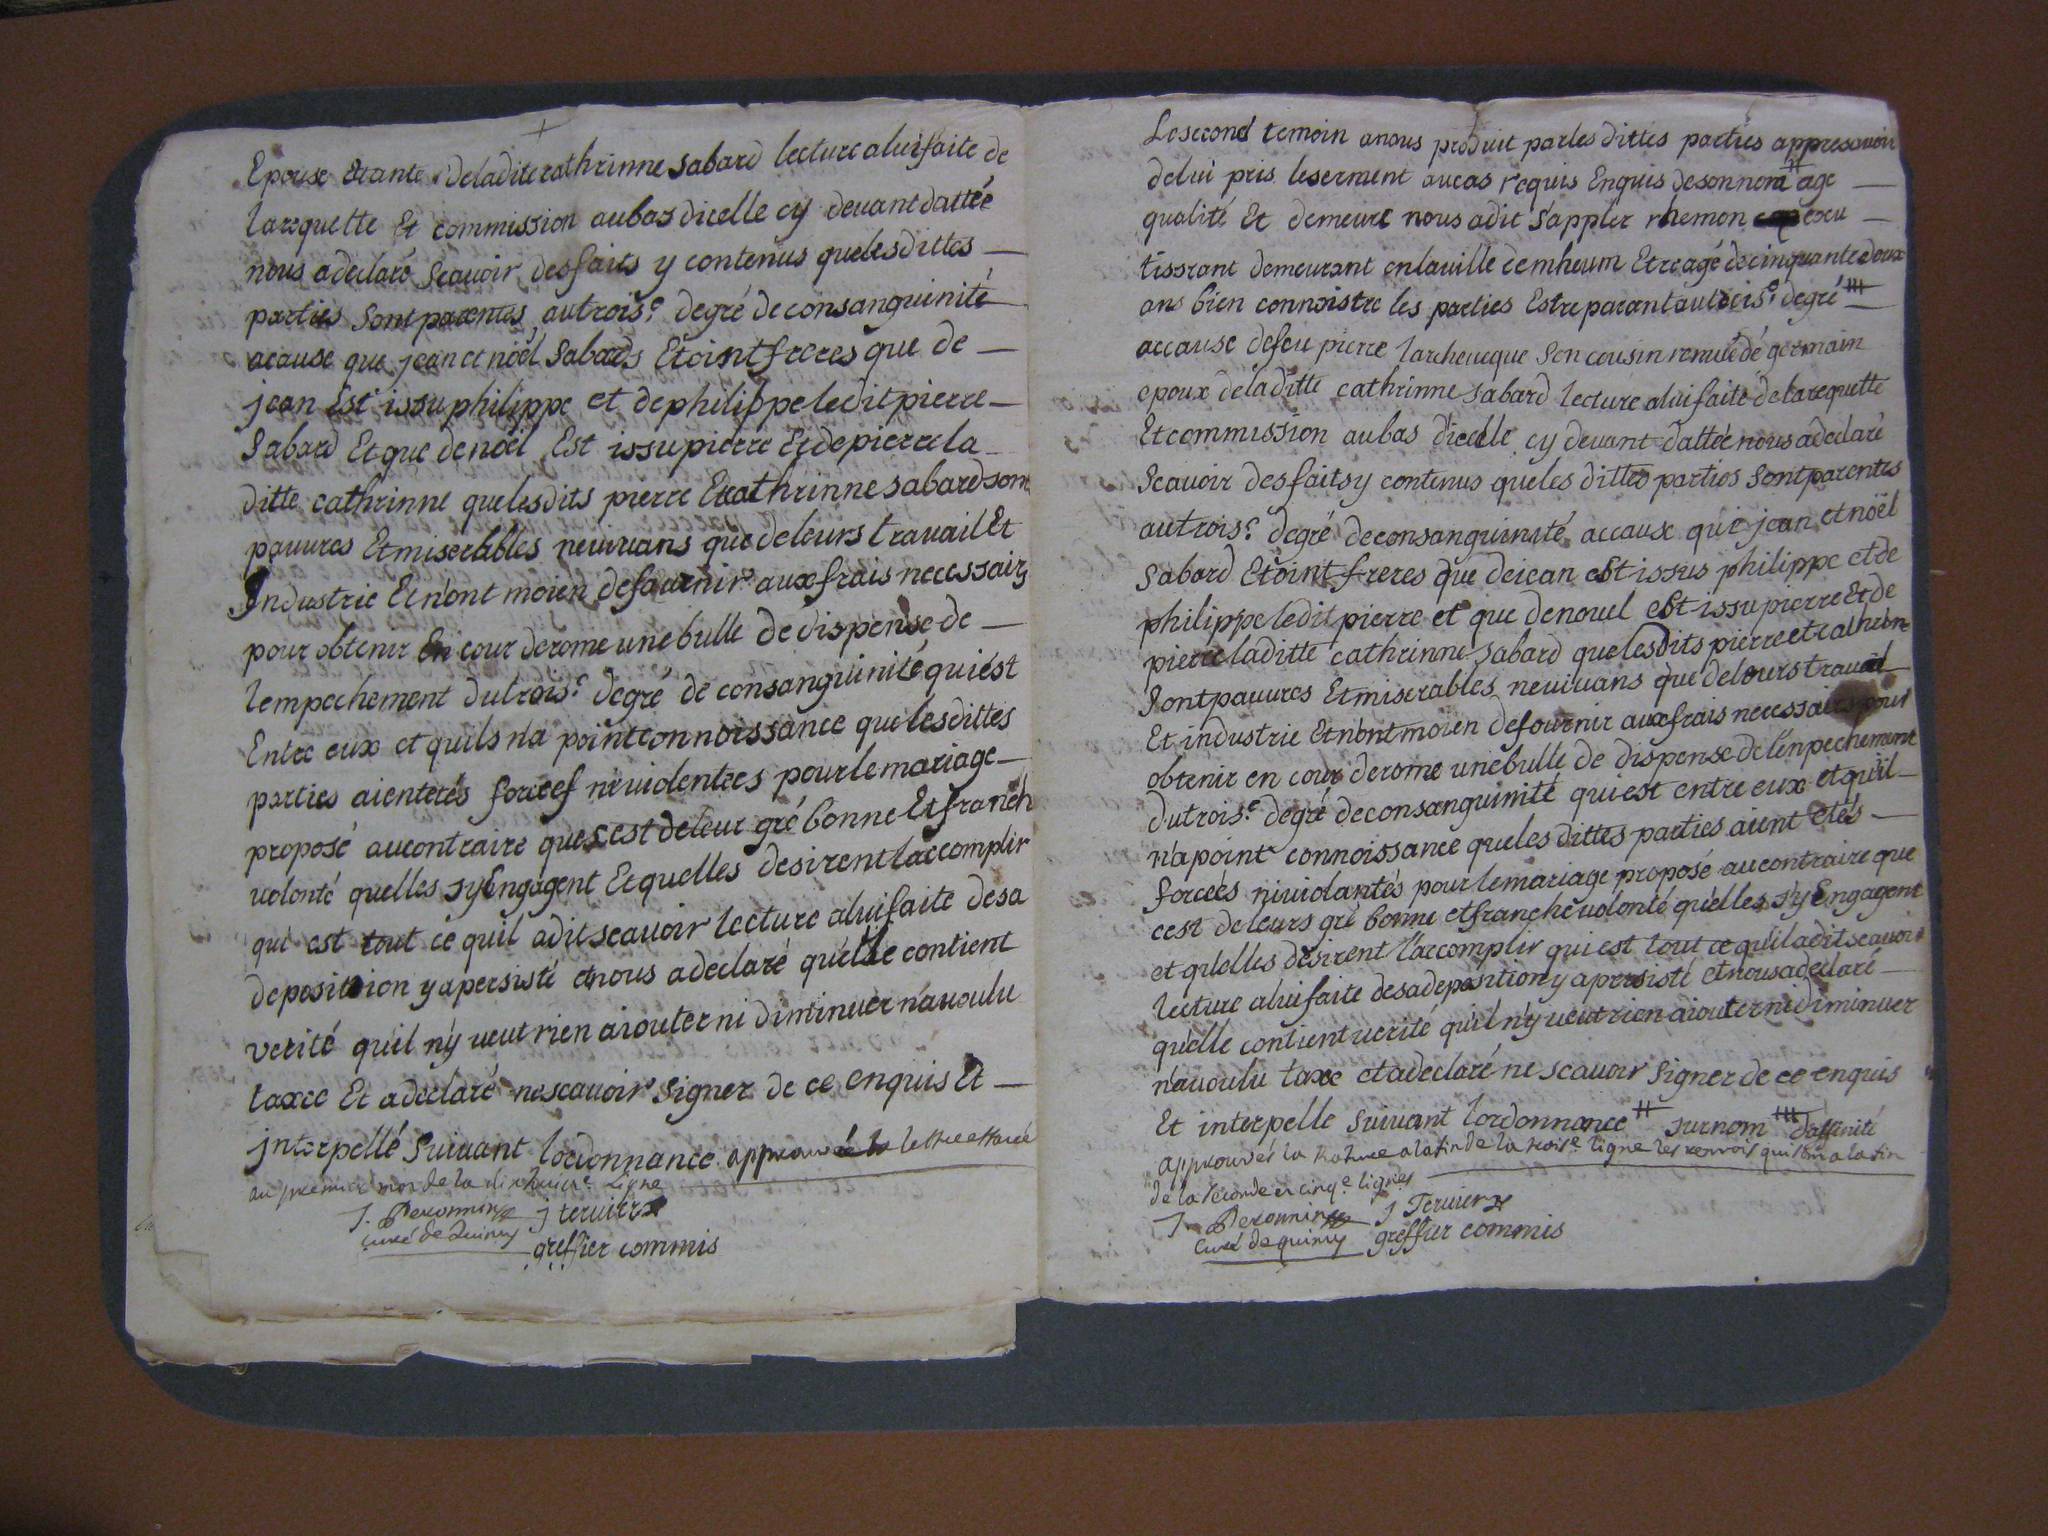 Epouse et ante de ladite cathrinne Sabard lecture a lui faite de
la requette Et commission au bas dicelle cy devant dattée
nous a declaré Scavoir des faits y contenus que lesdittes —
parties Sont parentes au trois.e degré de consanguinité
acause que jean et nöel Sabards Etoint freres que de —
jean Est issu philippe et de philippe ledit pierre —
Sabard Et que de nöel Est issu pierre Et de pierre la —
ditte cathrinne que lesdits pierre Et cathrinne Sabard sont
pauvres Et miserables ne vivans que de leurs travail Et
Industrie Et n'ont moien de fournir aux frais necessairs
pour obtenir En cour de rome une bulle de dispense de —
lempechement du trois.e degré de consanguinité qui est
Entre eux et quils n'a point connoissance que lesdittes
parties aient etés forcees ni violentées pour le mariage —
proposé au contraire que c'est de leur gré bonne Et franch
volonté quelles sy Engagent Et quelles desirent laccomplir
qui est tout ce quil a dit scavoir lecture a lui faite de sa
deposition y a persisté et nous a declaré qu'elle contient
verité qu'il n'y veut rien aiouter ni diminuer n'a voulu
taxee Et a declaré ne scavoir signer de ce enquis Et —
jnterpellé Suivant lordonnance approuvé la lettre effacée
au premier mot de la dixhuict.e Ligne
J. Peronnin J tervier
curé de Quincy greffier commis
Le second temoin a nous produit par les dittes parties appres avoir
de lui pris le serment au cas requis Enquis de son nom # age —
qualité Et demeure nous a dit s'appler rhemon —
tissrant demeurant en la ville de mheum Etre agé de cinquante deux
ans bien connoistre les parties Estre parant au trois.e degré —
accause de feu pierre larcheveque Son cousin remué de germain
epoux de la ditte cathrinne Sabard lecture a lui faite de la requette
Et commission au bas dicelle cy devant dattée nous a declaré
Scavoir des faits y contenus que les dittes parties Sont parentes
au trois.e degré de consanguinité accause que jean et nöel
Sabard Etoint freres que de jean est issus philippe et de
philippe ledit pierre et que de nouel est issu pierre Et de
pierre la ditte cathrinne Sabard que lesdits pierre et cathrinn
Sont pauvres Et miserables ne vivans que de leurs travail
Et industrie Et n'ont moien de fournir aux frais necessairs pour
obtenir en cour de rome une bulle de dispense de l'enpechement
du trois.e degré de consanguinité qui est entre eux et qu'il —
n'a point connoissance que les dittes parties aient etés —
forcées ni violantés pour le mariage proposé au contraire que
cest de leurs gré bonne et franche volonté qu'elles s'y Engagent
et qu'elles desirent l'accomplir qui est tout ce qu'il a dit scavoir
lecture a lui faite de sa deposition y a persisté et nous a declaré —
qu'elle contient verité qu'il n'y veut rien aiouter ni diminuer
n'a voulu taxe et a declaré ne scavoir Signer de ce enquis
Et interpelle Suivant lordonnance # surnom daffinité
approuvés la rature a la fin de la trois.e ligne les renvois qui sont a la fin
de la seconde et cinq.e lignes
J. Peronnin J Tervier
curé de quincy greffier commis